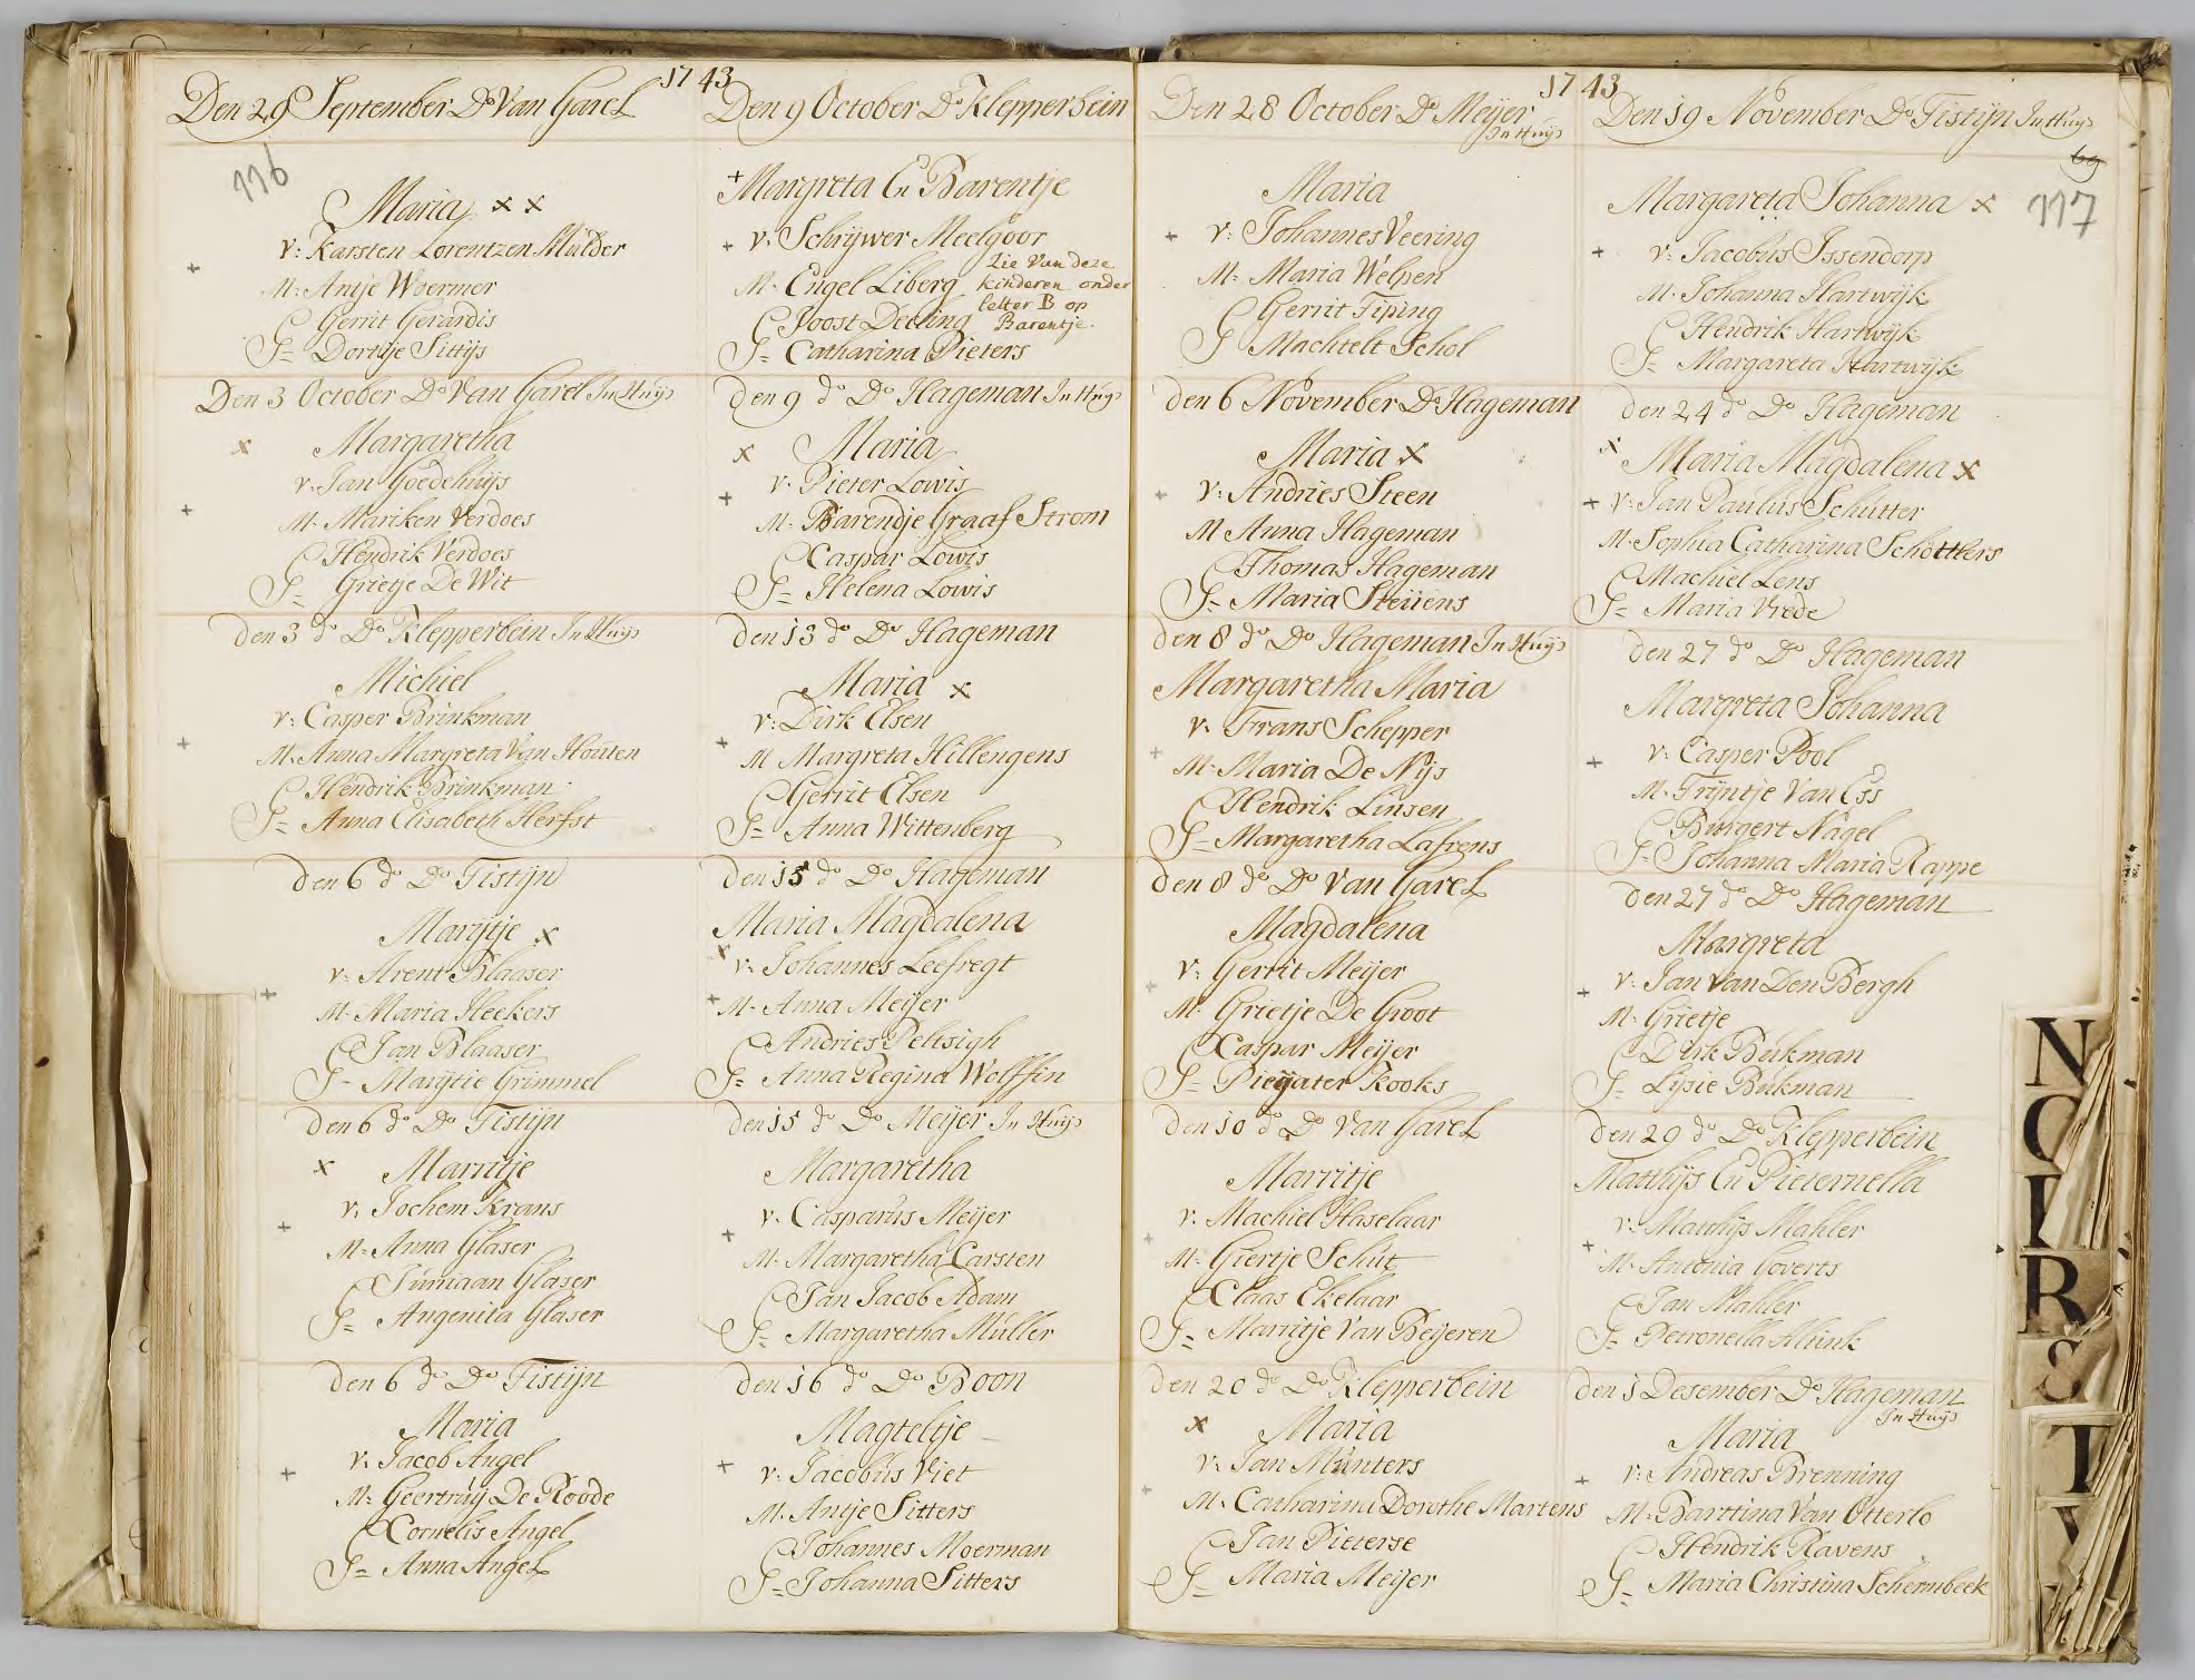 1743
Den 29 September Do Van Garel
116
Maria x x
v: Karsten Lorentzen Mulder
M: Antje Woermer
Gerrit Gerardis
G= Dortije Sittijs
Den 3 October Do Van Garel In Huijs
Margaretha
v. Jan Goedehuijs
M. Mariken Verdoes
Hendrik Verdoes
G= Grietje De Wit
den 3 do Do Klepperbein In Huijs
Michiel
v: Casper Brinkman
M. Anna Margreta Van Houten
Hendrik Brinkman
G= Anna Elisabeth Herfst
den 6 do Do Tistijn
Marijtje x
v. Arent Blaaser
M. Maria Heekers
Jan Blaaser
G= Marijtie Grimmel
den 6 do Do Tistijn
x Marritje
v. Jochem Krans
M. Anna Glaser
Jurriaan Glaser
G= Angenita Glaser
den 6 do Do Tistijn
Maria
v. Jacob Angel
M: Geertruij De Roode
Cornelis Angel
G= Anna Angel
Den 9 October Do Klepperbein
+ Margreta En Barentje
+ v. Schrijwer Meelgoor
M. Engel Liberg
Zie Van deze
kinderen onder
letter B op
Barentje.
Joost Deeling
G= Catharina Pieters
den 9 do Do Hageman In Huijs
x Maria
v. Pieter Lowis
M. Barendje Graaf Strom
Caspar Lowis
G= Helena Lowis
den 13 do Do Hageman
Maria x
v: Dirk Elsen
M Margreta Hillengens
Gerrit Elsen
G= Anna Wittenberg
den 15 do Do Hageman
Maria Magdalena
x v. Johannes Leefregt
+ M. Anna Meijer
Andries Peltsigh
G= Anna Regina Wolffin
den 15 do Do Meijer In Huijs
Margaretha
v. Casparus Meijer
M. Margaretha Carsten
Jan Jacob Adam
G= Margaretha Muller
den 16 do Do Boon
Magteltje
+ v. Jacobus Viet
M. Antje Sitters
Johannes Moerman
G= Johanna Sitters
1743
Den 28 October Do Meijer
In Huijs
Maria
+ v: Johannes Veering
M: Maria Welpen
Gerrit Tiping
G Machtelt Schol
den 6 November Do Hageman
Maria x
+ v: Andries Steen
M Anna Hageman
Thomas Hageman
G= Maria Steijens
den 8 do Do Hageman In Huijs
Margaretha Maria
v. Frans Schepper
M. Maria De Nijs
Hendrik Linsen
G= Margaretha Lafrens
den 8 do Do Van Garel
Magdalena
v: Gerrit Meijer
M. Grietje De Groot
Caspar Meijer
G= Pieijater Kooks
den 10 do Do Van Garel
Marritje
v. Machiel Haselaar
M. Giertje Schut
Claas Ekelaar
G= Marritje Van Beijeren
den 20 do Do Klepperbein
x Maria
v: Jan Munters
M. Catharina Dorothe Martens
Jan Pieterse
G= Maria Meijer
Den 19 November Do Tistijn In Huijs
69
Margareta Johanna x 117
+ v. Jacobus Issendorp
M. Johanna Hartwijk
Hendrik Hartwijk
G= Margareta Hartwijk
den 24 do Do Hageman
x Maria Magdalena x
+ v. Jan Paulus Schutter
M. Sophia Catharina Schottlers
Machiel Lens
G= Maria Vrede
den 27 do Do Hageman
Margreta Johanna
+ v: Casper Pool
M. Trijntje Van Ess
Burgert Nagel
G= Johanna Maria Rappe
den 27 do Do Hageman
Margreta
+ v: Jan Van Den Bergh
M. Grietje
Dirk Bukman
G= Lijsie Bukman
den 29 do Do Klepperbein
Matthijs En Pieternella
v. Matthijs Mahler
+ M. Antonia Goverts
Jan Mahler
G= Petronella Munk
den 1 Desember Do Hageman
In Huijs
Maria
+ v: Andreas Brenning
M. Barttina Van Otterlo
Hendrik Ravens
G= Maria Christina Schermbeek
N
R
S
T